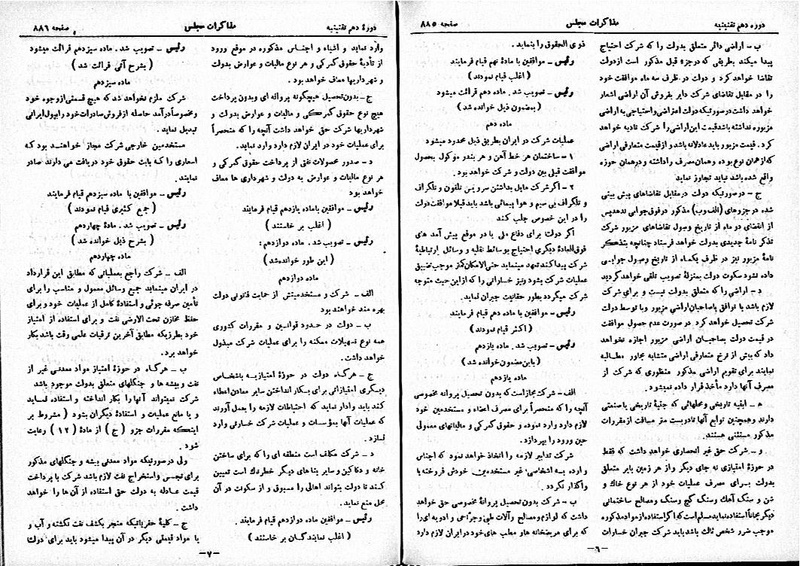 دوره دهم تقنینیه
مذاکرات مجلس
صفحه ۸۸۵
ب - اراضی دائر متعلق بدولت را که شرکت احتیاج
پیدا میکند بطریقی که در جزء قبل مذکور است از دولت
تقاضا خواهد کرد و دولت در ظرف سه ماه موافقت خود
را در مقابل تقاضای شرکت دایر بفروش آن اراضی اشعار
خواهد داشت در صورتیکه دولت اعتراضی و احتیاجی به اراضی
مزبوره نداشته باشد قیمت این اراضی را شرکت تادیه خواهد
کرد. قیمت مزبور باید عادلانه باشد و از قیمت متعارفی اراضی
که از همان نوع بوده و همان مصرف را داشته و در همان حوزه
واقع شده باشد نباید تجاوز نماید
ج - در صورتیکه دولت در مقابل تقاضاهای پیش بینی
شده در جزوهای (الف و ب) مذکور در فوق جوابی ندهد پس
از انقضای دو ماه از تاریخ وصول تقاضاهای مزبور شرکت
تذکر نامه جدیدی بدولت خواهد فرستاد چنانچه بتذکر
نامهٔ مزبور نیز در ظرف یکماه از تاریخ وصول جوابی
داده نشود سکوت دولت بمنزلهٔ تصویب تلقی خواهد گردید
د - اراضی را که متعلق بدولت نیست و برای شرکت
لازم باشد با توافق با صاحبان اراضی مزبور و با توسط دولت
شرکت تحصیل خواهد کرد. در صورت عدم حصول موافقت
در قیمت دولت بصاحبان اراضی مزبور اجازه نخواهد
داد که بیش از نرخ متعارفی اراضی متشابه مجاور مطالبه
نمایند برای تقویم اراضی مذکور منظوری که شرکت از
مصرف آنها دارد مأخذ قرار داده نمیشود.
ه - ابنیه تاریخی و محلهائی که جنبهٔ تاریخی یا صنعتی
دارند و همچنین توابع آنها تا دویست متر مسافت از مقررات
مذکور مستثنی هستند.
و - شرکت حق غیر انحصاری خواهد داشت که فقط
در حوزهٔ امتیاز یه نه جای دیگر و از هر زمین بایر متعلق
بدولت برای مصرف عملیات خود از هر نوع خاک و
شن و سنگ آهک و سنگ گچ و سنگ و مصالح ساختمانی
دیگر مجاناً استفاده نماید مسلم است که اگر استفاده از مواد مذکوره
موجب ضرر شخص ثالث باشد باید شرکت جبران خسارات
ذوی الحقوق را بنماید.
رئیس - موافقین با ماده نهم قیام فرمایند
(اغلب قیام نمودند)
رئیس - تصویب شد. ماده دهم قرائت میشود
(بمضمون ذیل خوانده شد)
ماده دهم
عملیات شرکت در ایران بطریق ذیل محدود میشود
۱ - ساختمان هر خط آهن و هر بندر موکول بحصول
موافقت قبل بین دولت و شرکت خواهد بود.
۲ - اگر شرکت مایل بداشتن سرویس تلفون و تلگراف
و تلگراف بی سیم و هوا پیمائی باشد باید قبلا موافقت دولت
را در این خصوص جلب کند
اگر دولت برای دفاع ملی یا در موقع پیش آمد های
فوق العادهٔ دیگری احتیاج بوسائط نقلیه و وسائل ارتباطیهٔ
شرکت پیدا کند تعهد مینماید حتی الامکان کمتر موجب تضییق
عملیات شرکت بشود و نیز خساراتی را که از این حیث متوجه
شرکت میگردد بطور حقانیت جبران نماید.
رئیس - موافقین با ماده دهم قیام فرمایند
(اکثر قیام نمودند)
رئیس - تصویب شد. ماده یازدهم
(باین مضمون خوانده شد)
ماده یازدهم
الف - شرکت مجاز است که بدون تحصیل پروانه مخصوصی
آنچه را که منحصراً برای مصرف اعضاء و مستخدمین خود
لازم دارد وارد نموده، و حقوق گمرکی و مالیاتهای معمولی
حین ورود را بپردازد.
شرکت تدابیر لازمه را اتخاذ خواهد نمود که اجناس
وارده باشخاص غیر مستخدمین خودش فروخته یا
واگذار نگردد.
ب - شرکت بدون تحصیل پروانهٔ مخصوصی حق خواهد
داشت که لوازم و مصالح و آلات طبی و جراحی و ادویه ای را
که برای مریضخانه ها و مطب های خود در ایران لازم دارد
-۶-
دورهٔ دهم تقنینیه
مذاکرات مجلس
صفحه ۸۸۶
وارد نماید و اشیاء و اجناس مذکوره در موقع ورود
از تأدیهٔ حقوق گمرکی و هر نوع مالیات و عوارض بدولت
و شهرداریها معاف خواهد بود.
ج - بدون تحصیل هیچگونه پروانه ای و بدون پرداخت
هیچ نوع حقوق گمرکی و مالیات و عوارض بدولت و
شهرداریها شرکت حق خواهد داشت آنچه را که منحصراً
برای عملیات خود در ایران لازم دارد وارد نماید.
د - صدور محصولات نفتی از پرداخت حقوق گمرکی و
هر نوع مالیات و عوارض به دولت و شهرداری ها معاف
خواهد بود
رئیس - موافقین با ماده یازدهم قیام فرمایند
(اغلب بر خاستند)
رئیس - تصویب شد. ماده دوازدهم:
(این طور خوانده شد)
ماده دوازدهم
الف - شرکت و مستخدمینش از حمایت قانونی دولت
بهره مند خواهند بود
ب - دولت در حدود قوانین و مقررات کشوری
همه نوع تسهیلات ممکنه را برای عملیات شرکت مبذول
خواهد داشت.
ج - هرگاه دولت در حوزهٔ امتیازیه باشخاص
دیگری امتیازاتی برای بکار انداختن سایر معادن اعطاء
کند باید وادار نماید که احتیاطات لازمه را بعمل آورند
که عملیات آنها بمؤسسات و عملیات شرکت خسارتی وارد
نسازد.
د - شرکت مکلف است منطقه ای را که برای ساختن
خانه و دکاکین و سایر بناهای دیگر خطرناک است تعیین
کند تا دولت بتواند اهالی را مسبوق و از سکونت در آن
محل منع نماید.
رئیس - موافقین ماده دوازدهم قیام فرمایند.
(اغلب نمایندگان بر خاستند)
رئیس - تصویب شد. ماده سیزدهم قرائت میشود
(بشرح آتی قرائت شد)
ماده سیزدهم
شرکت ملزم نخواهد شد که هیچ قسمتی از وجوه خود
و بخصوص درآمد حاصله از فروش صادرات خود را بپول ایرانی
تبدیل نماید.
مستخدمین خارجی شرکت مجاز خواهند بود که
اسعاری را که بابت حقوق خود دریافت می دارند صادر
نمایند.
رئیس - موافقین با ماده سیزدهم قیام فرمایند
(جمع کثیری قیام نمودند)
رئیس - تصویب شد. مادهٔ چهاردهم
(بشرح ذیل خوانده شد)
ماده چهاردهم
الف - شرکت راجع بعملیاتی که مطابق این قرارداد
در ایران مینماید جمیع وسائل معمول و مناسب را برای
تأمین صرفه جوئی و استفادهٔ کامل از عملیات خود و برای
حفظ مخازن تحت الارضی نفت و برای استفاده از امتیاز
خود بطرزیکه مطابق آخرین ترقیات علمی وقت باشد بکار
خواهد برد.
ب - هرگاه در حوزهٔ امتیاز مواد معدنی غیر از
نفت و بیشه ها و جنگلهای متعلق بدولت موجود باشد
شرکت نمیتواند آنها را بکار انداخته و استفاده نماید
و یا مانع عملیات و استفادهٔ دیگران بشود (مشروط بر
اینکه مقررات جزو (ج) از مادهٔ (۱۲) رعایت
شود
ولی در صورتیکه مواد معدنی بیشه و جنگلهای مذکور
برای تجسس و استخراج نفت لازم باشد شرکت با پرداخت
قیمت عادله به دولت حق استفاده از آن ها را خواهد
داشت.
ج - کلیهٔ حفریاتیکه منجر بکشف نفت نگشته و آب و
یا مواد قیمتی دیگر در آن پیدا میشود باید برای دولت
-۷-